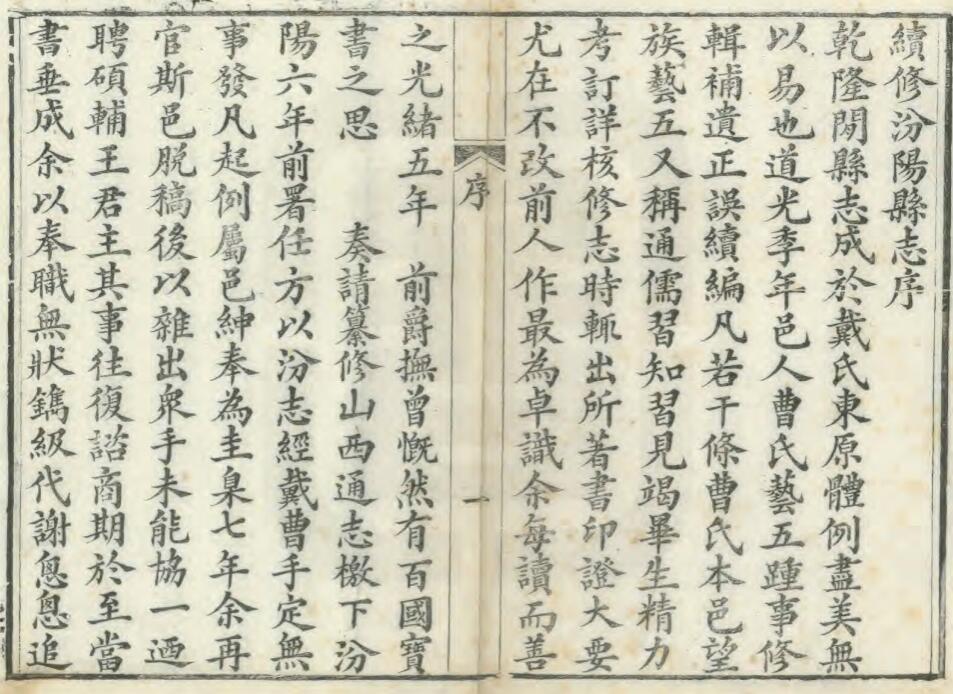 續修汾陽縣志序
乾隆間縣志成於戴氏東原體例盡美無
以易也道光季年邑人曹氏藝五踵事修
輯補遺正誤續編凡若干條曹氏本邑望
族藝五又稱通儒習知習見竭畢生精力
考訂詳核修志時輒出所著書印證大要
尤在不改前人作最為卓識余每讀而善
序
一
之光緒五年　前爵撫曾慨然有百國寶
書之思　奏請纂修山西通志檄下汾
陽六年前署任方以汾志經戴曹手定無
事發凡起例屬邑紳奉為圭臬七年余再
官斯邑脫稿後以雜出衆手未能協一迺
聘碩輔王君主其事往復諮商期於至當
書垂成余以奉職無狀鐫級代謝悤悤追